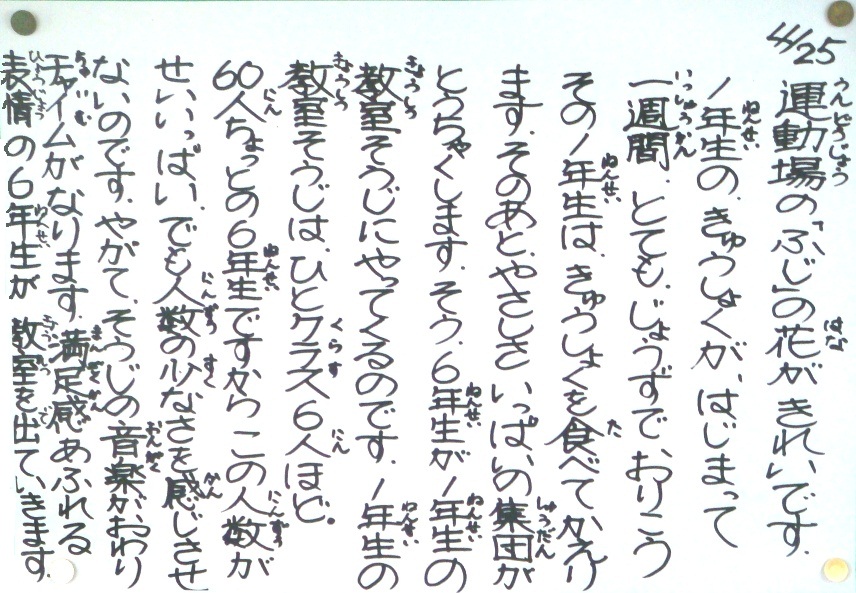 4/25
運動場の「ふじ」の花がきれいです.
1年生の、きゅうしょくが、はじまって
一週間、とても、じょうずで、おりこう
その1年生は、きゅうしょくを食べてかえり
ます。そのあと、やさしさ いっぱいの集団が
とうちゃくします。そう、6年生が1年生の
教室そうじにやってくるのです。1年生の
教室そうじは、ひとクラス6人ほど。
60人ちょっとの6年生ですから この人数が
せいいっぱい、でも人数の少なさを感じさせ
ないのです。やがて、そうじの音楽がおわり
チャイムがなります。満足感あふれる
表情の6年生が 教室を出ていきます.